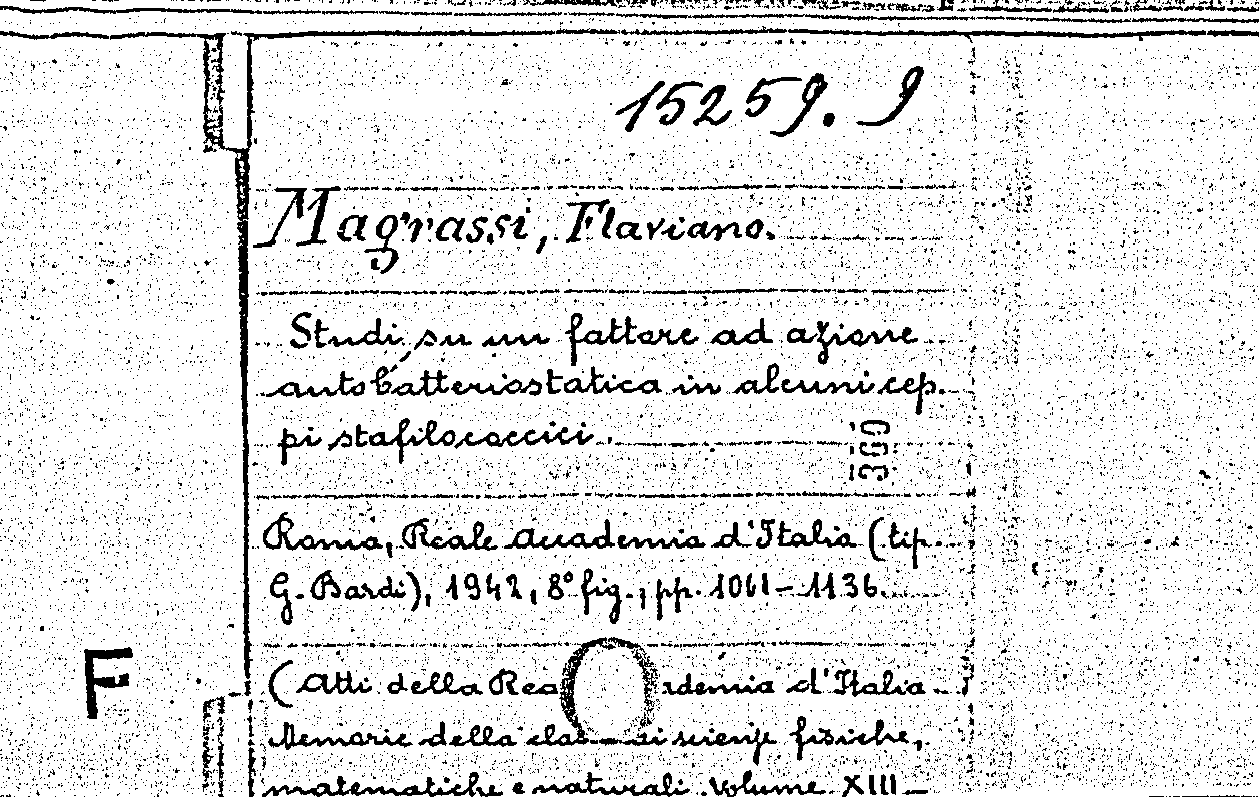 15259. 9
Magrassi, Flaviano.
Studi su un fattore ad azione
autobatteriostatica in alcuni cep.
pi stafilococcici.
369
Roma, Reale Accademia d'Italia (tip.
G. Bardi), 1942, 8° fig., pp. 1061-1136.
F
(Atti della Rea ademia d'Italia -
Memorie della clas di scienze fisiche,
matematiche e naturali. Volume XIII -